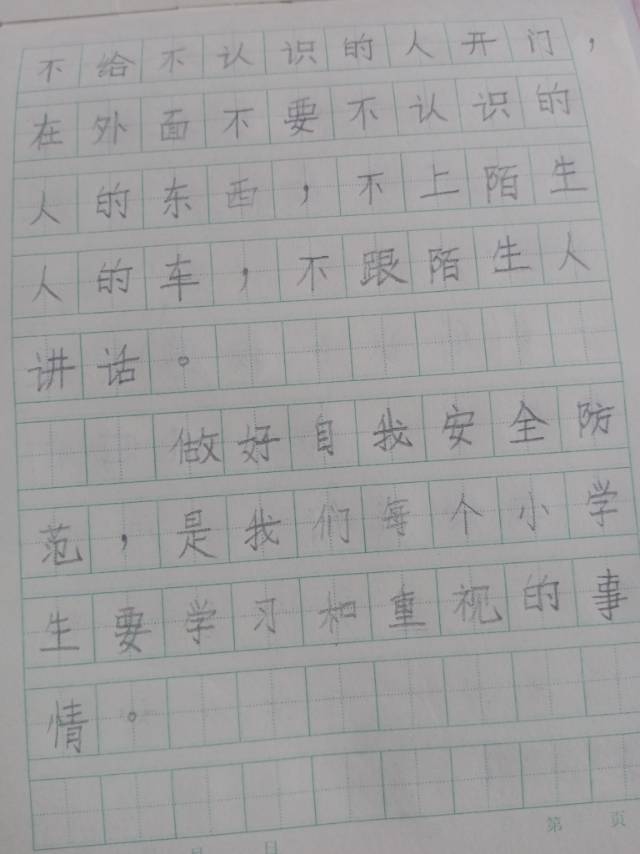 不给不认识的人开门，
在外面不要不认识的
人的东西，不上陌生
人的车，不跟陌生人
讲话。
做好自我安全防
范，是我们每个小学
生要学习和重视的事
情。
第 页
月 日